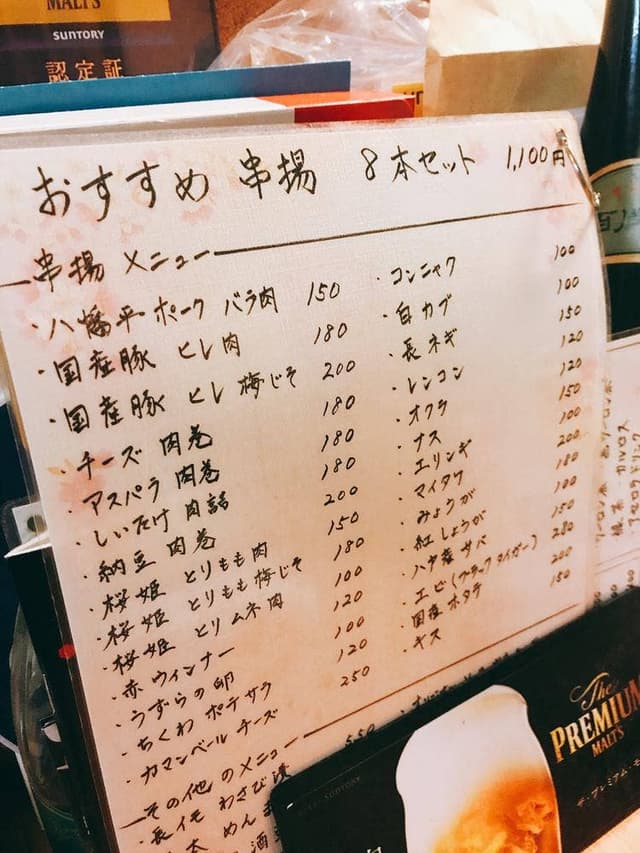 MALT'S
SUNTORY
認定証
おすすめ 串揚 8本セット 1,100円
串揚 メニュー
・八幡平ポーク バラ肉 150
・国産豚 ヒレ肉 180
・国産豚 ヒレ 梅じそ 200
・チーズ 肉巻 180
・アスパラ 肉巻 180
・しいたけ 肉詰 180
・納豆 肉巻 200
・桜姫 とりもも肉 150
・桜姫 とりもも梅じそ 180
・桜姫 とりムネ肉 100
・赤ウィンナー 120
・うずらの卵 100
・ちくわ ポテサラ 120
・カマンベール チーズ 250
・コンニャク 100
・白カブ 100
・長ネギ 150
・レンコン 120
・オクラ 120
・ナス 150
・エリンギ 100
・マイタケ 200
・みょうが 180
・紅しょうが 100
・八戸産 サバ 150
・エビ(ブラックタイガー) 280
・国産 ホタテ 200
・キス 180
その他 のメニュー
・長イモ わさび漬 550
The
PREMIUM
MALT'S
ザ・プレミアム・モ